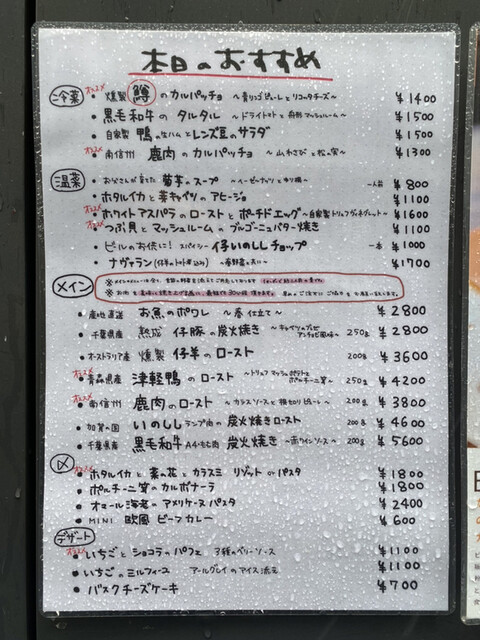 本日のおすすめ
冷菜
オススメ • 燻製 鱒のカルパッチョ ～青リンゴピューレとリコッタチーズ～ ¥1400
• 黒毛和牛のタルタル ～ドライトマトと マッシュルーム～ ¥1500
• 自家製 鴨の生ハムとレンズ豆のサラダ ¥1500
オススメ • 南信州 鹿肉のカルパッチョ ～山わさびと松の実～ ¥1300
温菜
• お父さんが育てた 菊芋のスープ 一人前 ¥800
• ホタルイカと春キャベツのアヒージョ ¥1100
オススメ • ホワイトアスパラのローストとポーチドエッグ ～自家製トリュフヴィネグレット～ ¥1600
オススメ • つぶ貝とマッシュルームのブルゴーニュバター焼き ¥1100
• ビールのお供に! スパイシー 仔いのししチョップ 一本 ¥1000
• ナヴァラン(仔羊のトマト煮込み) ～春野菜と共に～ ¥1700
メイン
• 産地直送 お魚のポワレ ～春仕立て～ ¥2800
• 千葉県産 熟成 仔豚の炭火焼き ～キャベツのブレゼ アンチョビ風味～ 250g ¥2800
• オーストラリア産 燻製 仔羊のロースト 200g ¥3600
オススメ • 青森県産 津軽鴨のロースト ～トリュフマッシュポテトとポルチーニ茸～ 250g ¥4200
オススメ • 南信州 鹿肉のロースト ～カシスソースと根セロリピューレ～ 200g ¥3800
• 加賀の国 いのししランプ肉の炭火焼きロースト 200g ¥4600
• 千葉県産 黒毛和牛 A4・もも肉 炭火焼き ～赤ワインソース～ 200g ¥5600
〆
オススメ • ホタルイカと菜の花とカラスミ リゾット or パスタ ¥1800
• ポルチーニ茸のカルボナーラ ¥1800
• オマール海老のアメリケーヌパスタ ¥2400
• MINI 欧風 ビーフカレー ¥600
デザート
オススメ • いちごとショコラのパフェ 3種のベリーソース ¥1100
• いちごのミルフィーユ アールグレイのアイス添え ¥1100
• バスクチーズケーキ ¥700